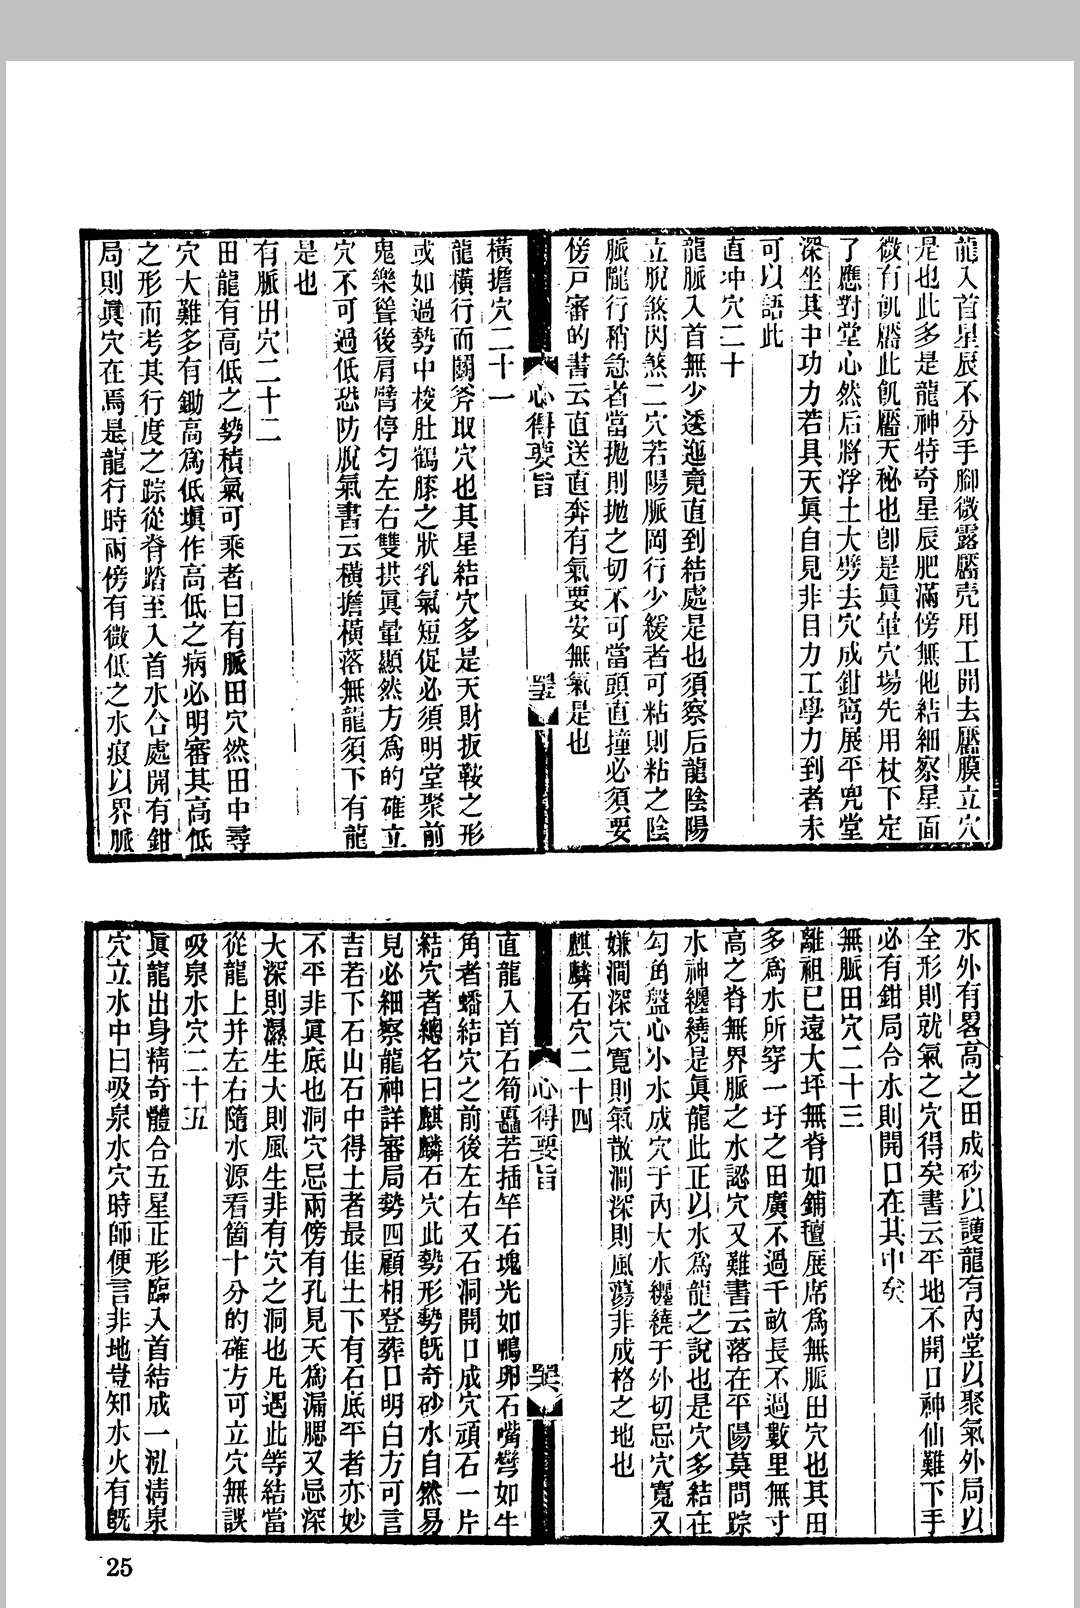 龍入首星辰不分手腳微露靨壳用工開去靨膜立穴
是也此多是龍神特奇星辰肥滿傍無他結細察星面
微有飢靨此飢靨天秘也卽是眞暈穴場先用杖下定
了應對堂心然后將浮土大劈去穴成鉗窩展平兜堂
深坐其中功力若具天眞自見非目力工學力到者未
可以語此
直冲穴二十
龍脈入首無少逶迤竟直到結處是也須察后龍陰陽
立脫煞閃煞二穴若陽脈岡行少緩者可粘則粘之陰
脈隴行稍急者當拋則拋之切不可當頭直撞必須要
傍戸審的書云直送直奔有氣要安無氣是也
心得要旨
橫擔穴二十一
龍橫行而關斧取穴也其星結穴多是天財扳鞍之形
或如過勢中梭肚鶴膝之狀乳氣短促必須明堂聚前
鬼樂聳後肩臂停匀左右雙拱眞暈顯然方爲的確立
穴不可過低恐防脫氣書云橫擔橫落無龍須下有龍
是也
有脈田穴二十二
田龍有高低之勢積氣可乘者曰有脈田穴然田中尋
穴大難多有鋤高爲低塡作高低之病必明審其高低
之形而考其行度之踪從脊踏至入首水合處開有鉗
局則眞穴在焉是龍行時兩傍有微低之水痕以界脈
水外有畧高之田成砂以護龍有內堂以聚氣外局以
全形則就氣之穴得矣書云平地不開口神仙難下手
必有鉗局合水則開口在其中矣
無脈田穴二十三
離祖已遠大坪無脊如鋪氊展席爲無脈田穴也其田
多爲水所穿一圩之田廣不過千畝長不過數里無寸
高之脊無界脈之水認穴又難書云落在平陽莫問踪
水神纏繞是眞龍此正以水爲龍之說也是穴多結在
勾角盤心小水成穴于內大水纏繞于外切忌穴寬又
嫌澗深穴寬則氣散澗深則風蕩非成格之地也
麒麟石穴二十四
心得要旨
直龍入首石筍矗若插竿石塊光如鴨卵石嘴彎如牛
角者蟠結穴之前後左右又石洞開口成穴頑石一片
結穴者總名曰麒麟石穴此勢形勢旣奇砂水自然易
見必細察龍神詳審局勢四顧相登葬口明白方可言
吉若下石山石中得土者最佳土下有石底平者亦妙
不平非眞底也洞穴忌兩傍有孔見天爲漏腮又忌深
大深則濕生大則風生非有穴之洞也凡遇此等結當
從龍上并左右隨水源看箇十分的確方可立穴無誤
吸泉水穴二十五
眞龍出身精奇體合五星正形臨入首結成一泓淸泉
穴立水中曰吸泉水穴時師便言非地豈知水火有旣
25